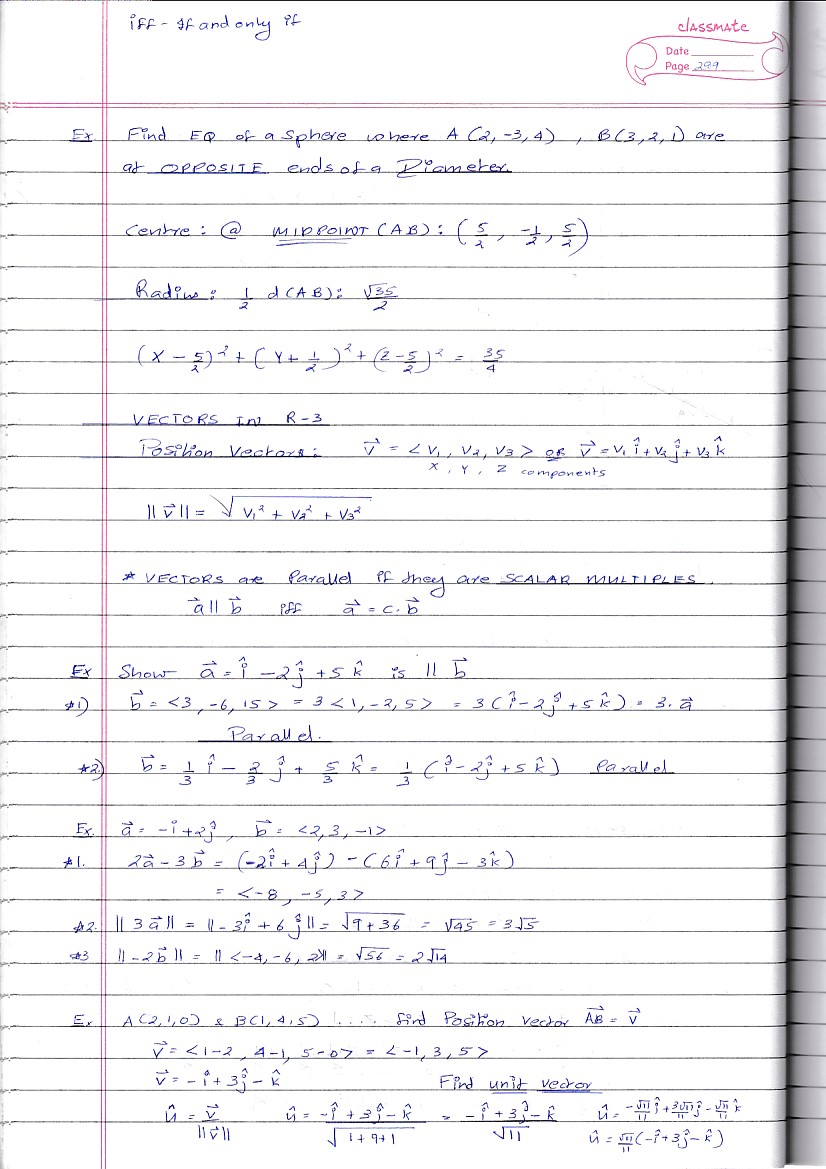 iff - If and only if
classmate
Date
Page 299
Ex. Find EQ of a sphere where A (2, -3, 4) , B(3, 2, 1) are
at OPPOSITE ends of a Diameter.
Centre : @ MIDPOINT (AB) : (5/2 , -1/2 , 5/2)
Radius : 1/2 d(AB) : √35/2
(X - 5/2)² + (Y + 1/2)² + (Z - 5/2)² = 35/4
VECTORS IN R-3
Position Vectors : v⃗ = <V₁ , V₂ , V₃> OR v⃗ = V₁ î + V₂ ĵ + V₃ k̂
X , Y , Z components
||v⃗|| = √(V₁² + V₂² + V₃²)
* VECTORS are Parallel if they are SCALAR MULTIPLES.
a⃗ || b⃗ iff a⃗ = c. b⃗
Ex Show a⃗ = î - 2ĵ + 5 k̂ is || b⃗
#1) b⃗ = <3, -6, 15> = 3 <1, -2, 5> = 3 (î - 2ĵ + 5 k̂) = 3. a⃗
Parallel.
#2) b⃗ = 1/3 î - 2/3 ĵ + 5/3 k̂ = 1/3 (î - 2ĵ + 5 k̂) Parallel
Ex. a⃗ = -î + 2ĵ , b⃗ = <2, 3, -1>
#1. 2a⃗ - 3b⃗ = (-2î + 4ĵ) - (6î + 9ĵ - 3k̂)
= <-8 , -5, 3>
#2. || 3 a⃗ || = || -3î + 6 ĵ || = √(9 + 36) = √45 = 3√5
#3 || -2b⃗ || = || <-4, -6, 2>|| = √56 = 2√14
Ex. A(2, 1, 0) & B(1, 4, 5) .... find Position vector A⃗B⃗ = v⃗
v⃗ = <1-2, 4-1, 5-0> = <-1, 3, 5>
v⃗ = -î + 3ĵ - k̂ Find unit vector
û = v⃗/||v⃗|| û = (-î + 3ĵ - k̂)/√(1+9+1) = (-î + 3ĵ - k̂)/√11 û = -√11/11 î + 3√11/11 ĵ - √11/11 k̂
û = √11/11 (-î + 3ĵ - k̂)